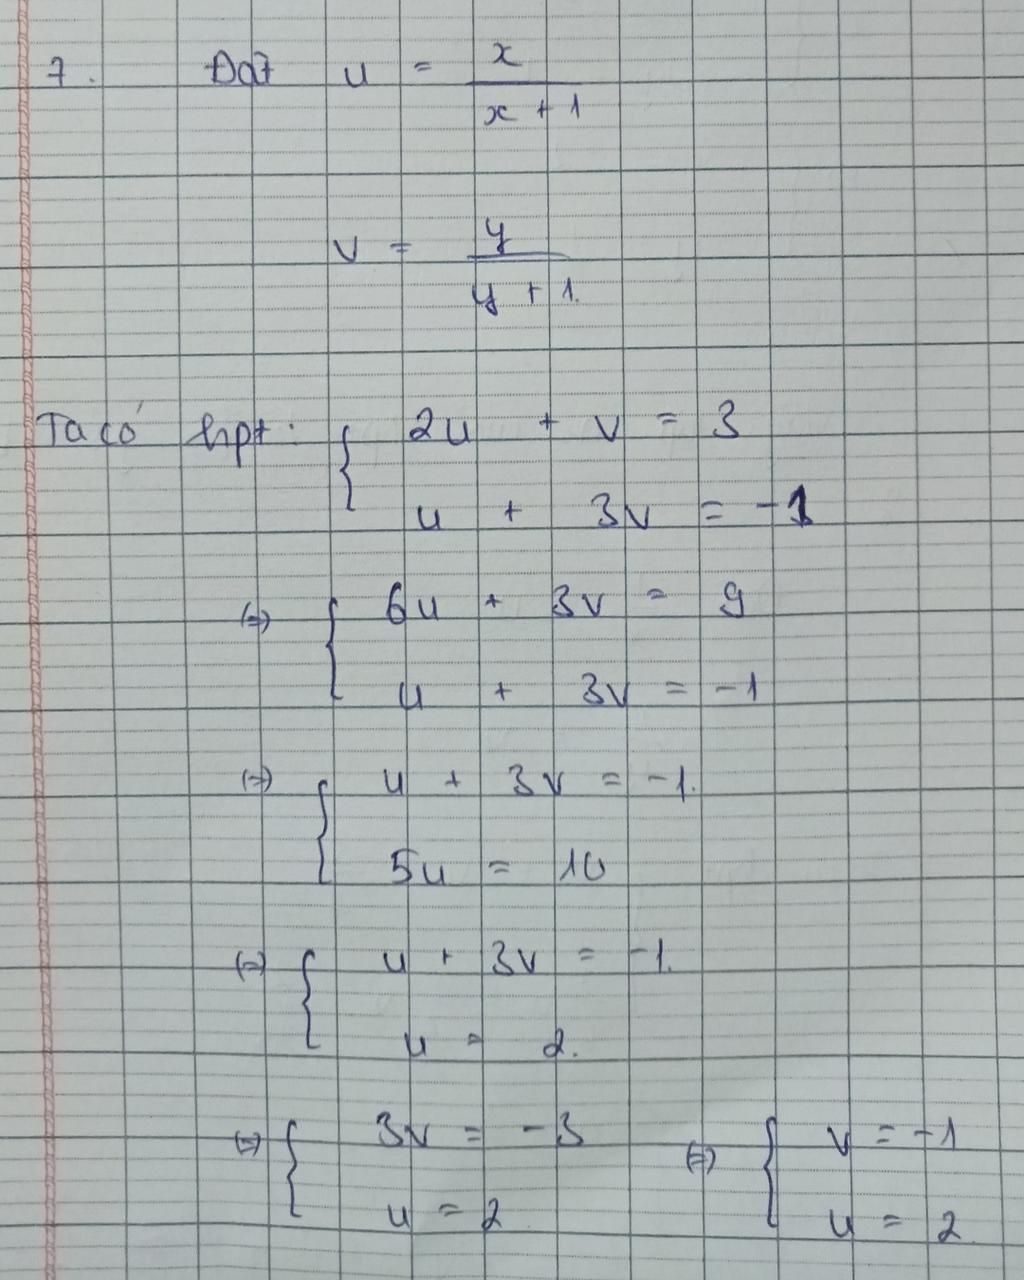 7. Đặt u = x / (x + 1)
v = y / (y + 1).
Ta có hpt: { 2u + v = 3
u + 3v = -1
(=) { 6u + 3v = 9
u + 3v = -1
(=) { u + 3v = -1.
5u = 10
(=) { u + 3v = -1.
u = 2.
(=) { 3v = -3 (=) { v = -1
u = 2 u = 2